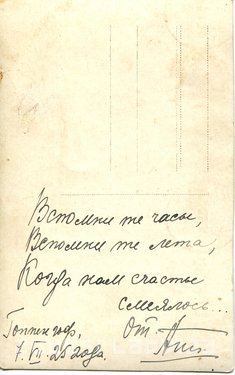 Вспомни те часы,
Вспомни те лета,
Когда нам счастье
смеялось...
От
7. VII. 25 года.